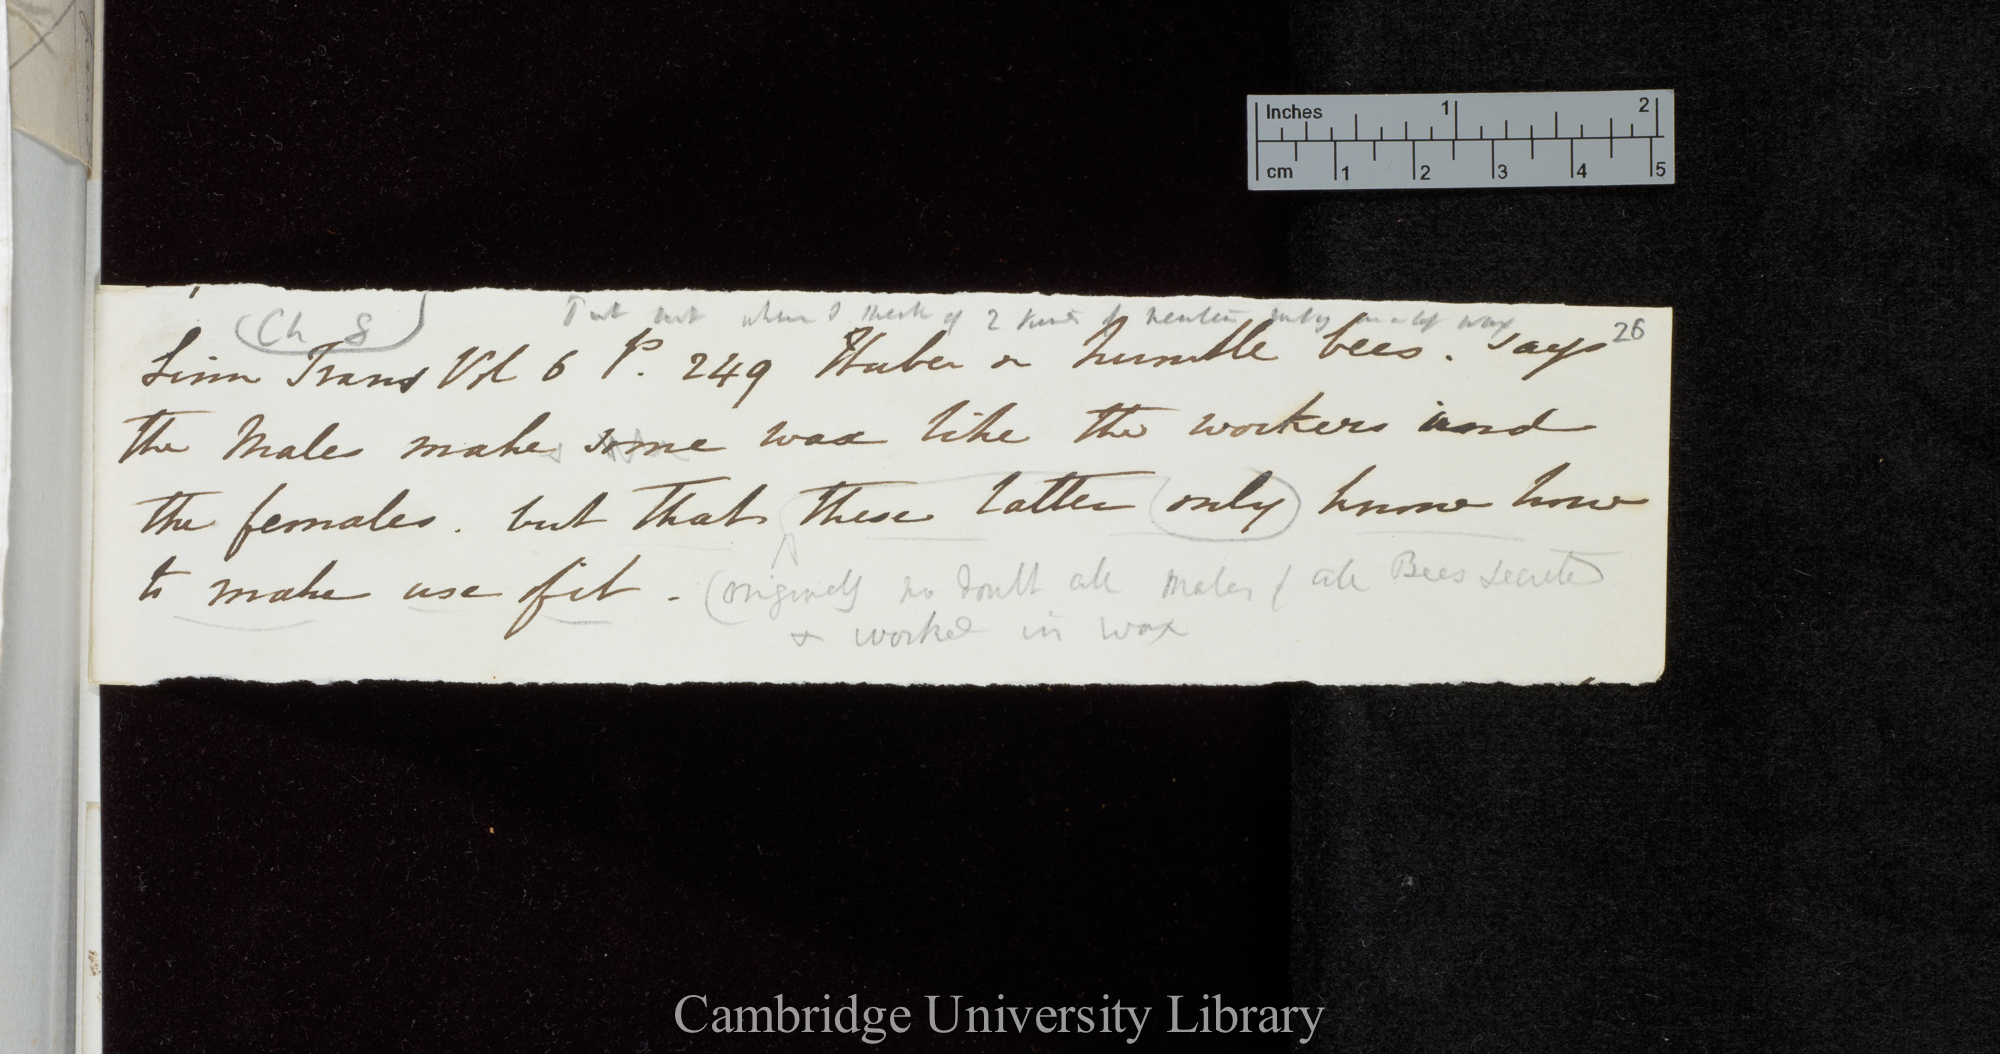 Inches 1 2
cm 1 2 3 4 5
(Ch 8)
Put out when I think of 2 kinds of neuters only make wax
26
Linn Trans Vol 6 P. 249 Huber on humble bees. Says
the Males make some wax like the workers and
the females. but that these latter only know how
to make use of it. (originally no doubt all males & all Bees secreted
& worked in wax
Cambridge University Library